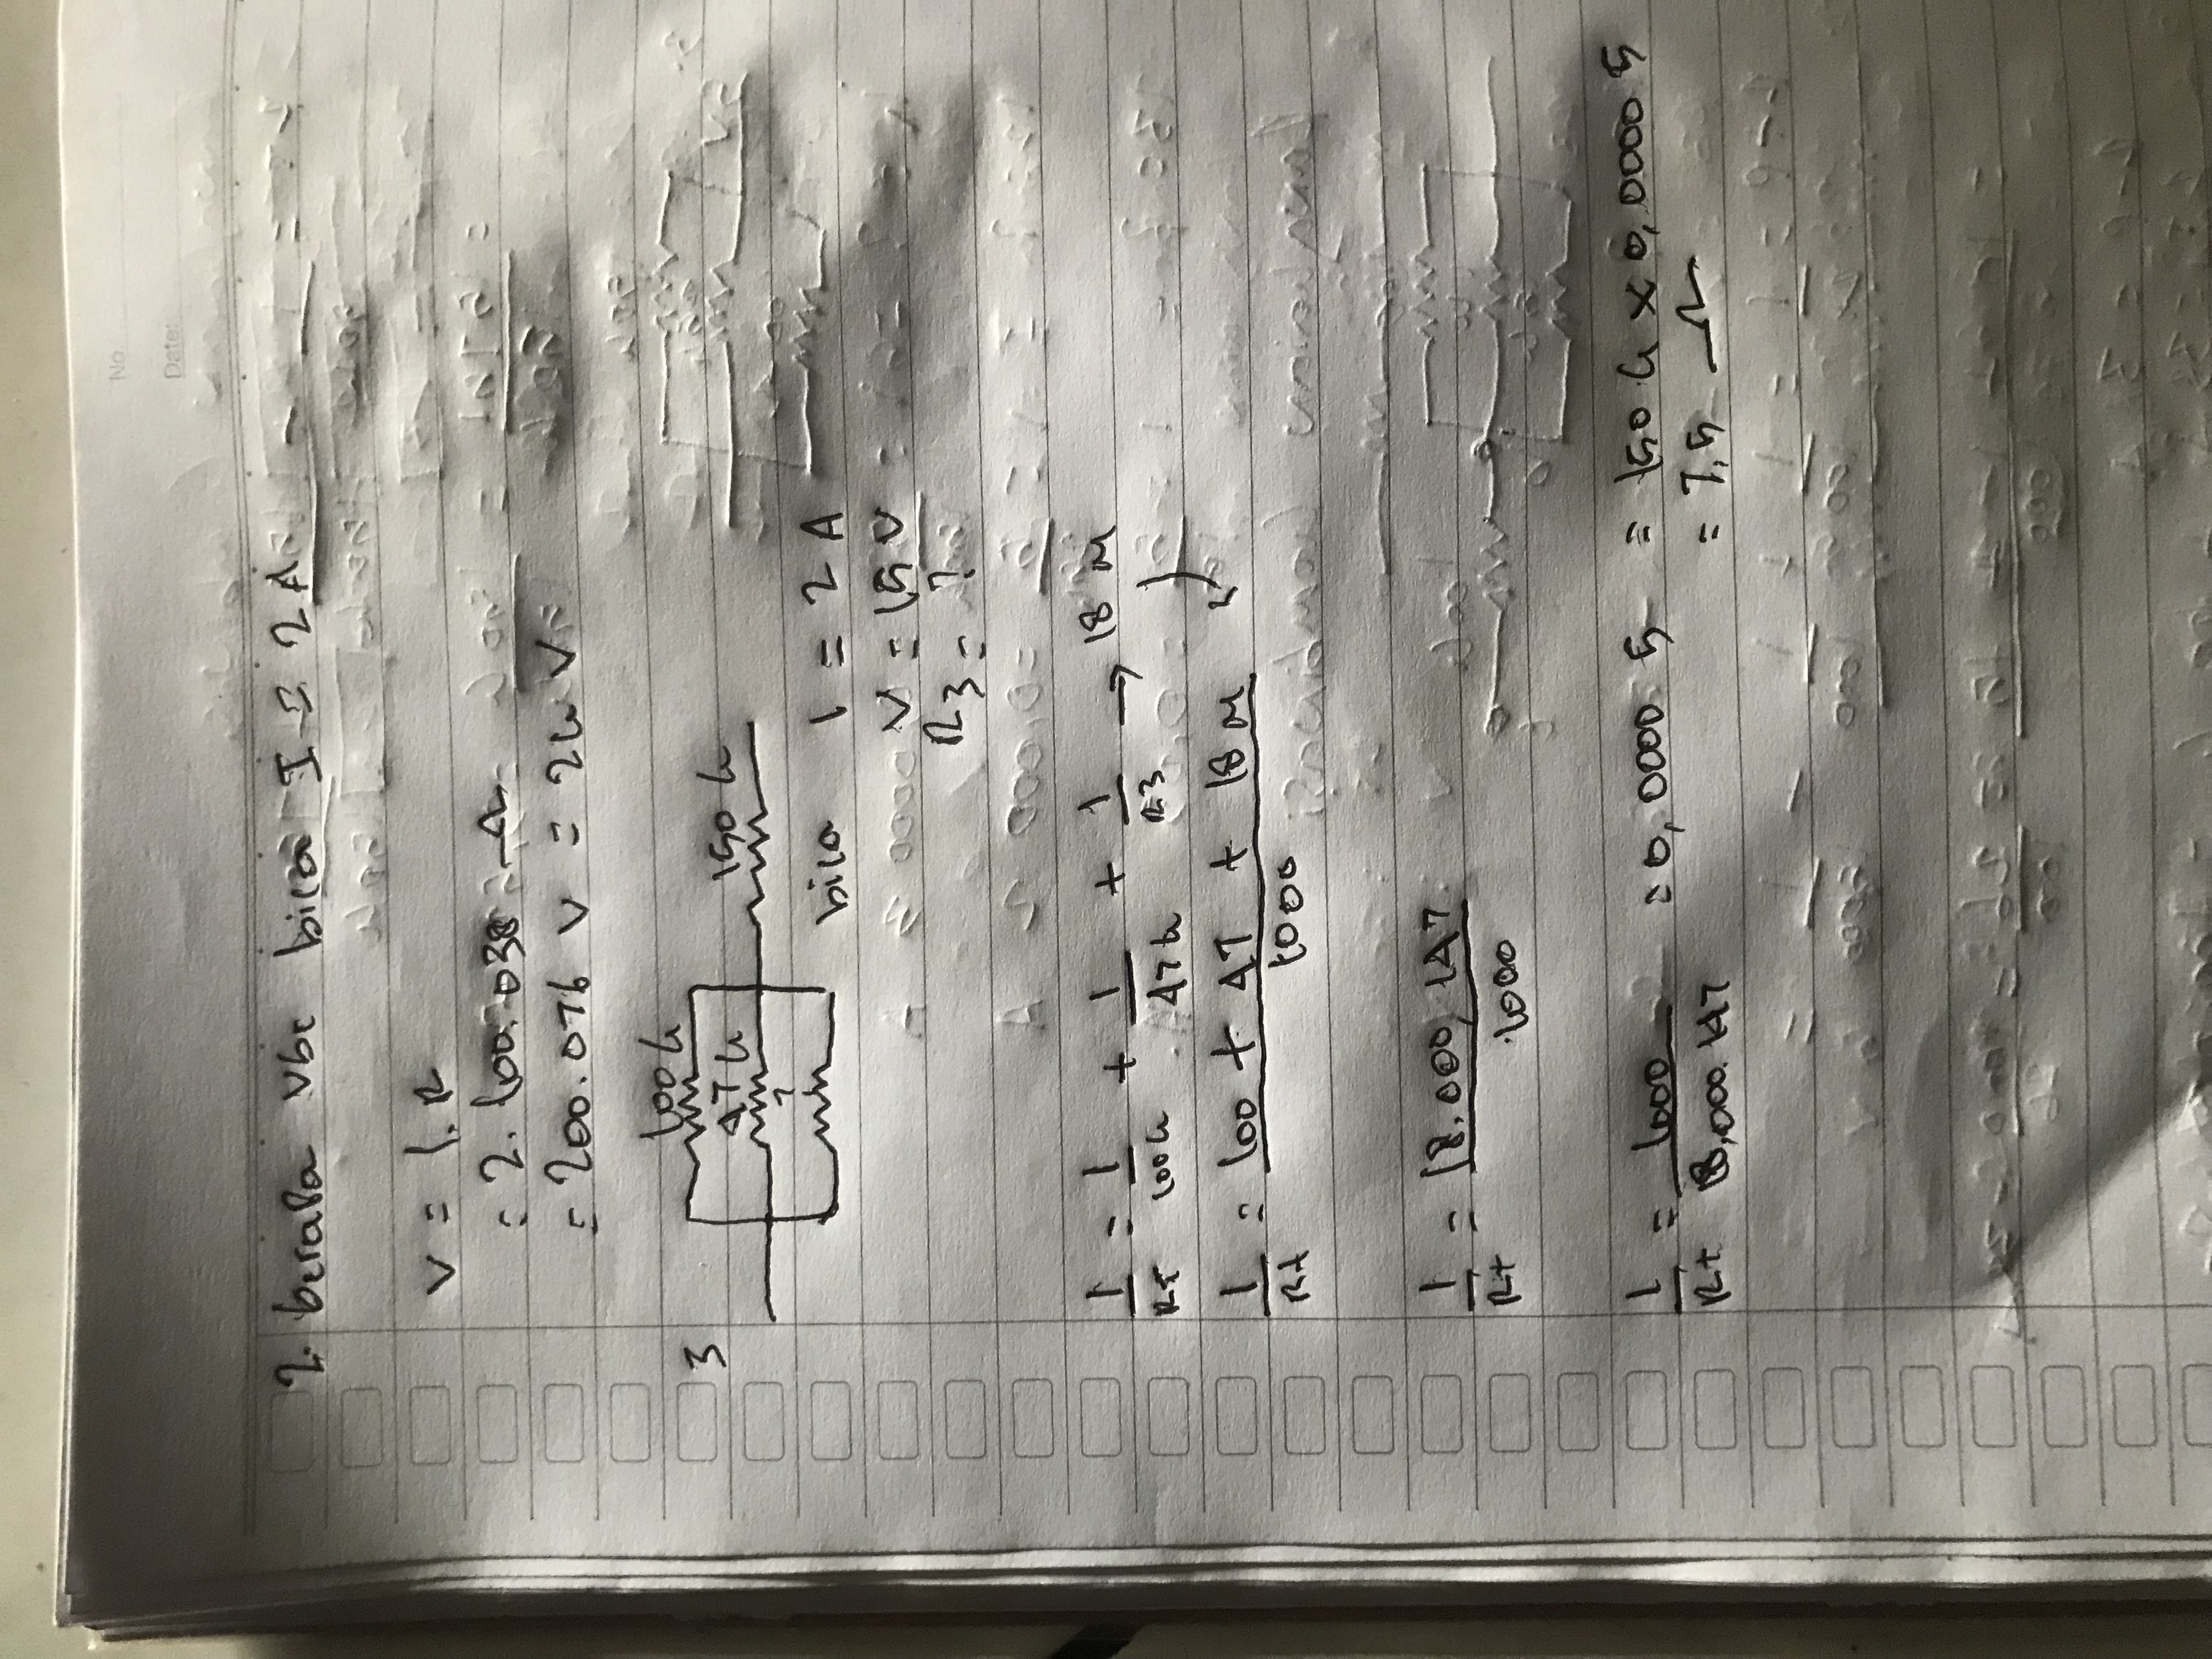 No.
Date:
2. berapa Vbc bila I = 2 A
V = I.R
= 2. 100.038 Ω
= 200.076 V = 2k V
3
100k
47k
150k
?
bila I = 2 A
V = 15 V
R3 = ?
1/RT = 1/100k + 1/47k + 1/R3 → 18 M
1/Rt = 100 + 47 + 18 M / 1000
1/Rt = 18.000,147 / 1000
1/Rt = 1000 / 18,000.147 = 0,0000 5 = 150 k x 0,0000 5
= 7,5 Ω